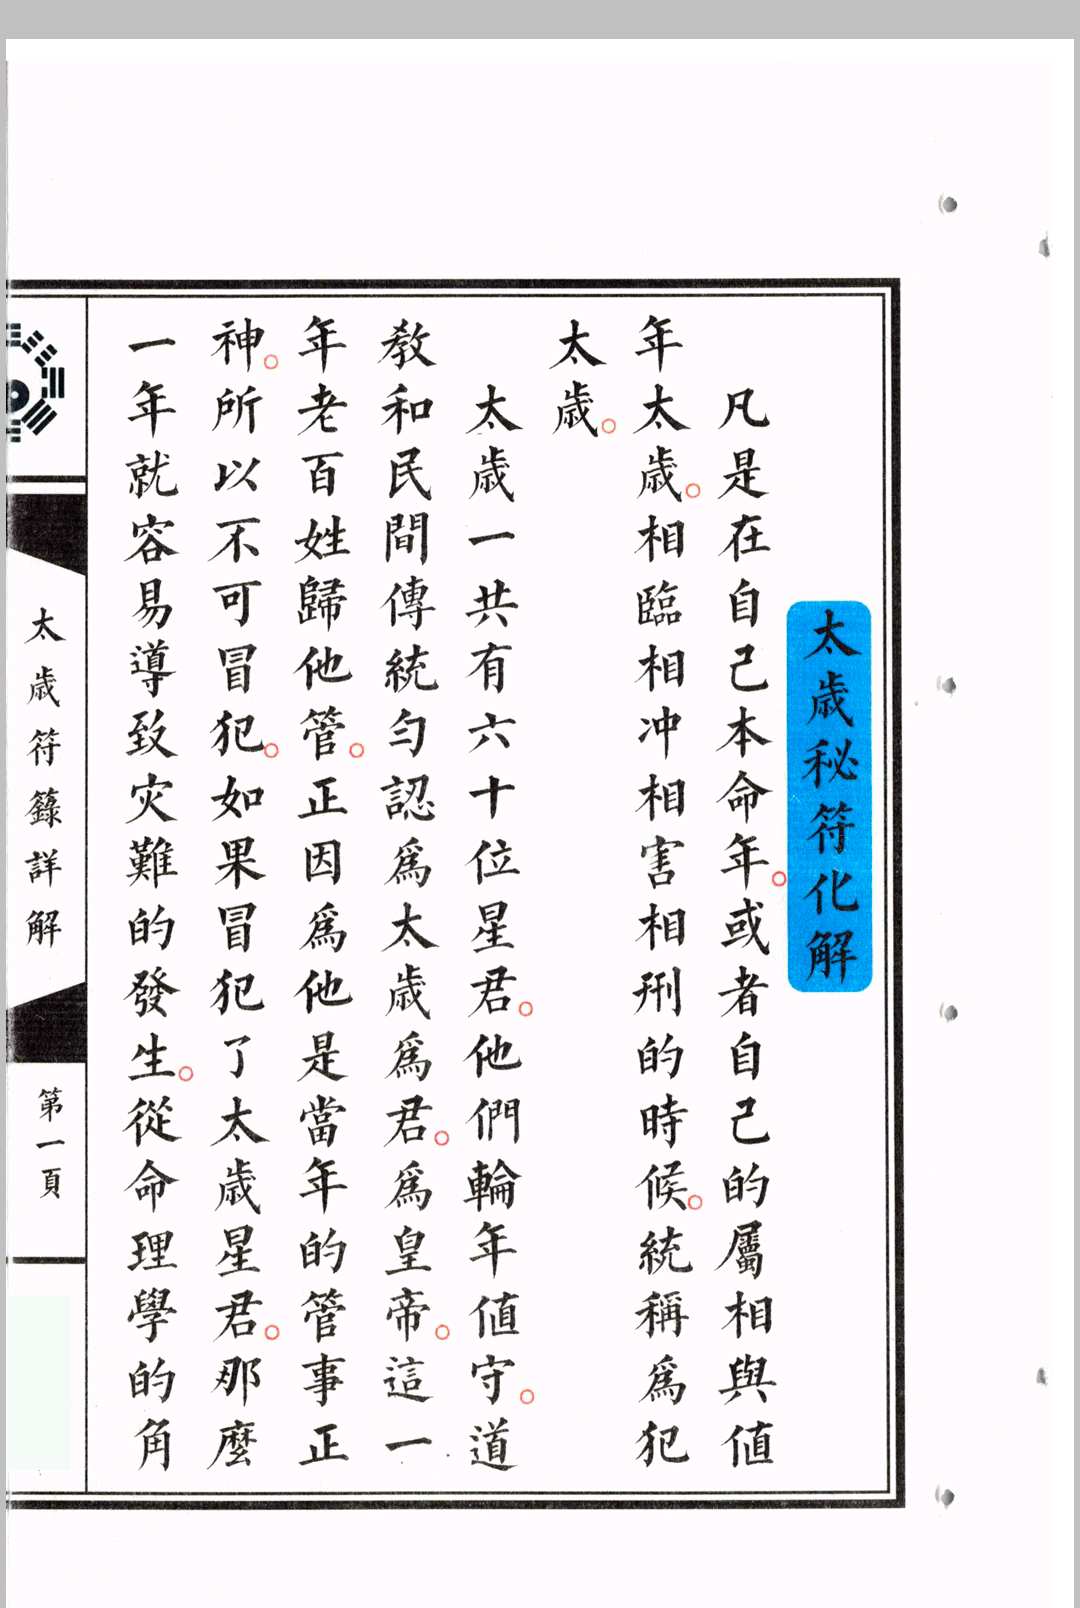 太歲秘符化解
凡是在自己本命年。或者自己的屬相與值
年太歲。相臨相冲相害相刑的時候。統稱爲犯
太歲。
太歲一共有六十位星君。他們輪年值守。道
教和民間傳統勻認爲太歲爲君。爲皇帝。這一
年老百姓歸他管。正因爲他是當年的管事正
神。所以不可冒犯。如果冒犯了太歲星君。那麼
一年就容易導致灾難的發生。從命理學的角
太歲符籙詳解
第一頁